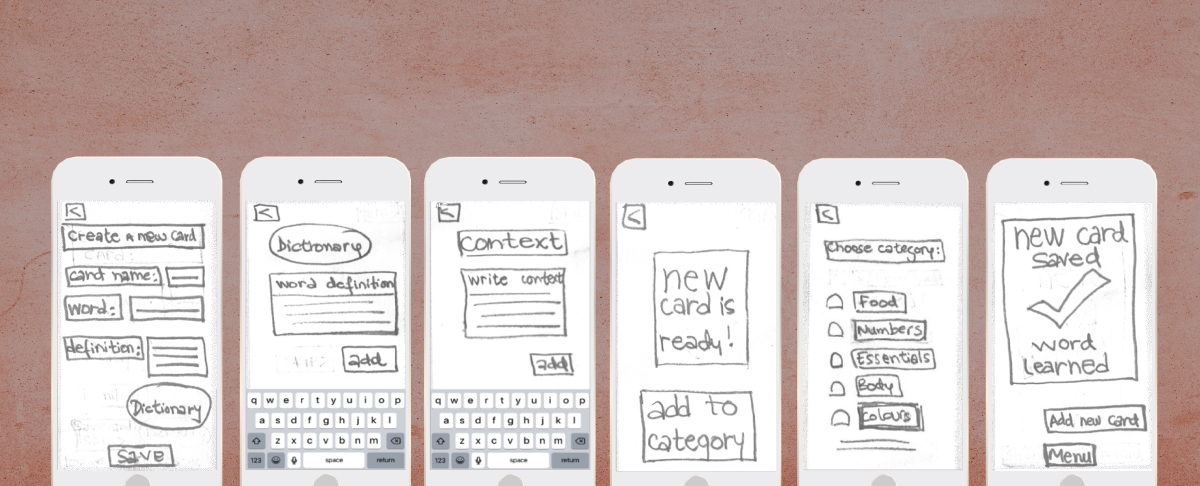 <
Create A new Card
card name:
word:
definition:
Dictionary
SAVE
<
Dictionary
word definition
add
q w e r t y u i o p
a s d f g h j k l
z x c v b n m
123 space return
<
context
write context
add
q w e r t y u i o p
a s d f g h j k l
z x c v b n m
123 space return
<
new
card is
ready!
add to
category
<
Choose category:
Food
Numbers
Essentials
Body
Colours
new card
saved
word
learned
Add new card
Menu